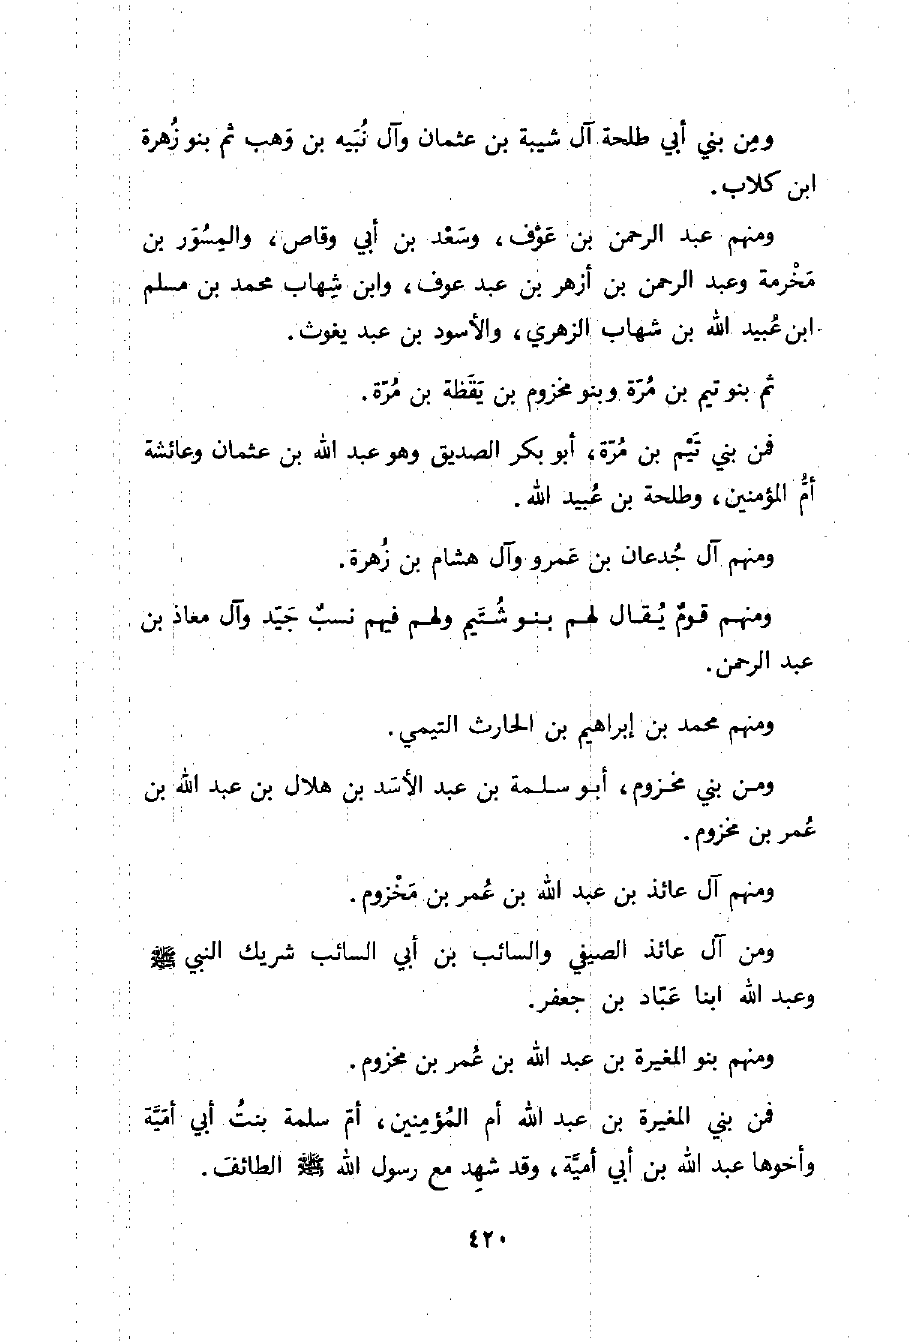 ومِن بني أبي طلحة آل شيبة بن عثمان وآل نُبَيه بن وَهب ثم بنو زُهرة
ابن كلاب.
ومنهم عبد الرحمن بن عَوْف، وسَعْد بن أبي وقاص، والمِسْوَر بن
مَخْرمة وعبد الرحمن بن أزهر بن عبد عوف، وابن شِهاب محمد بن مسلم
ابن عُبيد الله بن شهاب الزهري، والأسود بن عبد يغوث.
ثم بنو تيم بن مُرّة وبنو مخزوم بن يَقَظة بن مُرّة.
فمن بني تَيْم بن مُرّة، أبو بكر الصديق وهو عبد الله بن عثمان وعائشة
أمُّ المؤمنين، وطلحة بن عُبيد الله.
ومنهم آل جُدعان بن عَمرو وآل هشام بن زُهرة.
ومنهم قومٌ يُقال لهم بنو شُتَيم ولهم فيهم نسبٌ جَيّد وآل معاذ بن
عبد الرحمن.
ومنهم محمد بن إبراهيم بن الحارث التيمي.
ومن بني مخزوم، أبو سلمة بن عبد الأسَد بن هلال بن عبد الله بن
عُمر بن مخزوم.
ومنهم آل عائذ بن عبد الله بن عُمر بن مَخْزوم.
ومن آل عائذ الصيفي والسائب بن أبي السائب شريك النبي ﷺ
وعبد الله ابنا عَبّاد بن جعفر.
ومنهم بنو المغيرة بن عبد الله بن عُمر بن مخزوم.
فمن بني المغيرة بن عبد الله أم المُؤمِنين، أمّ سلمة بنتُ أبي أمَيَّة
وأخوها عبد الله بن أبي أميَّة، وقد شهِد مع رسول الله ﷺ الطائف.
٤٢٠